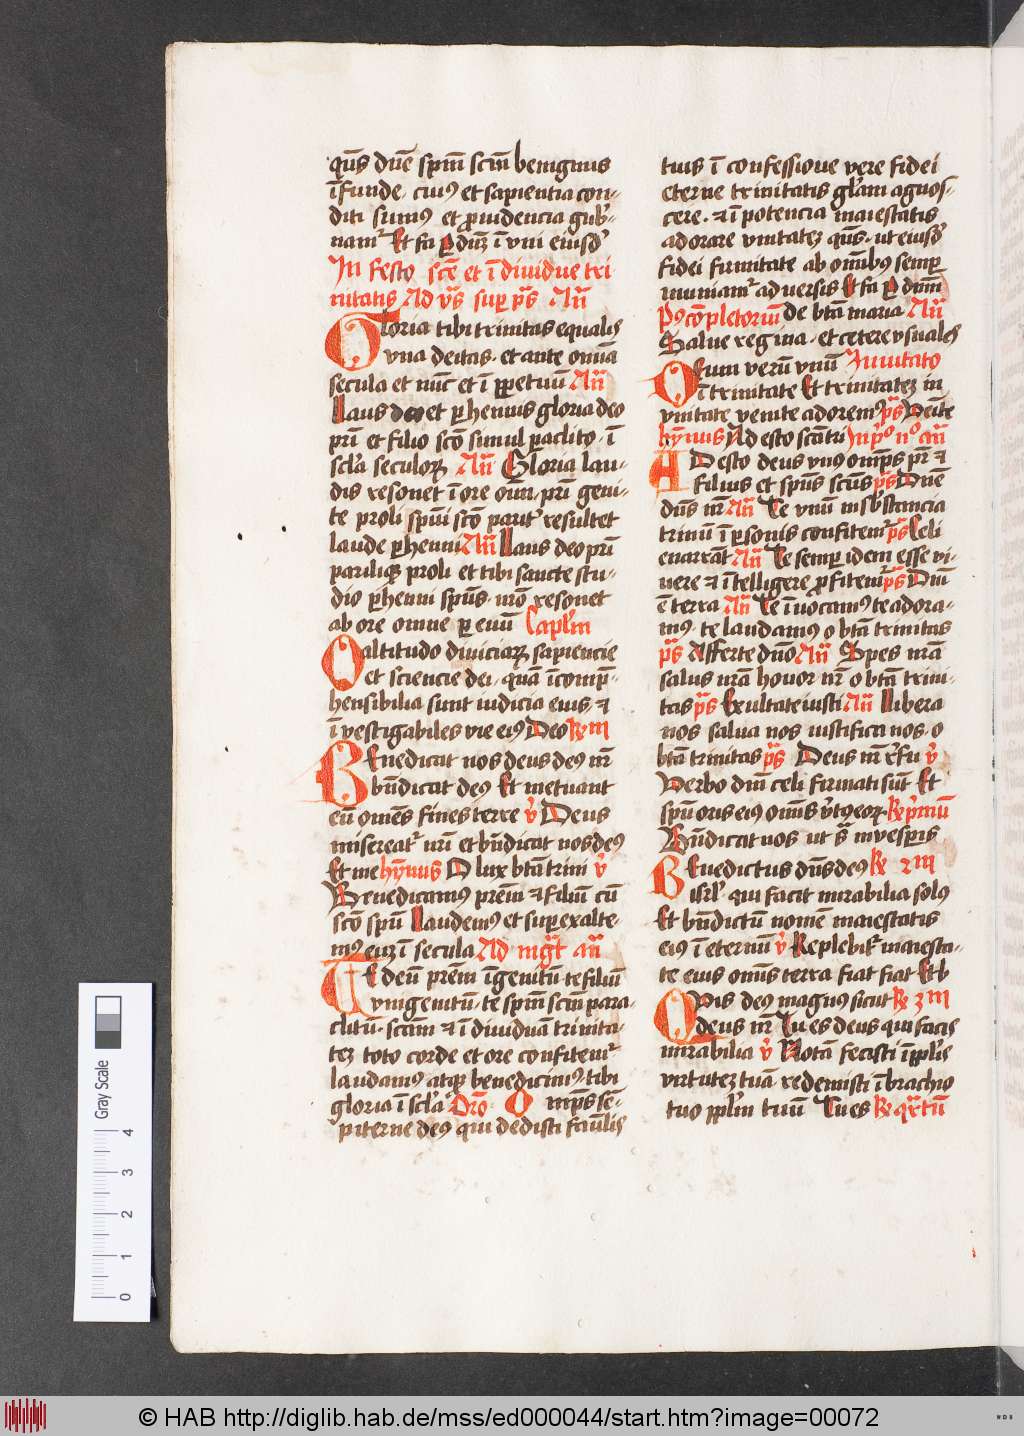 qūs dn̄e spm̄ scm̄ benignus
īfunde, cuius et sapientia con-
diti sumus et prouidencia gub̄-
namr̄ Et fa ꝑ dūz ī vni eiusd̄
In festo scē et īdiuidue tri
nitatis Ad vs̄ sup ps̄ An̄
Gloria tibi trinitas equalis
vna deitas · et ante om̄ia
secula et nūc et ī ꝑpetuū An̄
Laus deo et ꝑhennis gloria deo
pr̄i et filio scō simul paclito · ī
scl̄a seculoꝝ An̄ Gloria lau-
dis resonet ī ore om̄m pr̄i geni-
te proli spūi scō parit̄ resultet
laude ꝑhenni An̄ Laus deo pr̄i
pariliqꝫ proli et tibi sancte stu-
dio ꝑhenni spūs · nr̄o resonet
ab ore omne ꝑ euū Capl'm
O altitudo diuiciaꝝ sapiencie
et sciencie dei, quā īcomp̄-
hensibilia sunt iudicia eius ⁊
īvestigabiles vie eiꝰ Deo Rm
Benedicat nos deus deꝰ nr̄
bn̄dicat deꝰ Et metuant
eū om̄es fines terre v̄ Deus
misereatr̄ nrī et bn̄dicat nos deꝰ
Et me hȳnus O lux btā trini v̄
Benedicamus prēm ⁊ filiū cū
scō spū Laudemꝰ et supexalte-
mꝰ eūz ī secula Ad mgt̄ an̄
Te deū prēm īgenitū · te filiū
vnigenitū · te spm̄ scm̄ para-
clitū · scām ⁊ īdiuiduā trinita-
tez toto corde et ore confitemr̄
laudamus atqꝫ benedicimꝰ · tibi
gloria ī scl̄a Or̄o Omp̄s sē-
piterne deꝰ qui dedisti faūlis
tuis ī confessione vere fidei
eterne trinitatis gl'am agnos-
cere · ⁊ ī potencia maiestatis
adorare vnitatez qūs · ut eiusd̄
fidei firmitate ab om̄ibꝰ semp
muniamr̄ aduersis Et fa ꝑ dnm̄
Pꝰ cōpletoriū de btā maria An̄
Salue regina · et cetere vsuales
Deum verū vnū Inuitato
ī trinitate Et trinitatez in
vnitate venite adoremꝰ ps̄ Ven̄te
hȳnus Adesto scā tri In pº nº an̄
Adesto deus vnus omp̄s pr̄ ⁊
filius et spūs scūs ps̄ Dn̄e
dn̄s nr̄ An̄ Te vnū in sb̄stancia
trinū ī ꝑsonis confitemr̄ ps̄ Celi
enarrāt An̄ Te semp idem esse vi-
uere ⁊ ītelligere ꝓfitemr̄ ps̄ Dnī
ē terra An̄ Te īuocamꝰ te adora-
mꝰ · te laudamus o btā trinitas
ps̄ Afferte dn̄o An̄ Spes nr̄a
salus nr̄a honor nr̄ o btā trini-
tas ps̄ Exultate iusti An̄ Libera
nos salua nos iustifica nos · o
btā trinitas ps̄ Deus nr̄ refu v̄
Verbo dnī celi firmati sūt Et
spū oris eiꝰ om̄is v̄tꝰ eoꝝ R p̄mū
Bn̄dicat nos ut s̄ in vesp̄is
Benedictus dn̄s deus R 2m
isrl' qui facit mirabilia solus
Et bn̄dictū nomē maiestatis
eiꝰ ī eternū v̄ Replebitr̄ maiesta-
te eius om̄is terra fiat fiat Et b
Quis deꝰ magnus sicut R 3m
deus nr̄ Tu es deus qui facis
mirabilia v̄ Notā fecisti ī pp̄lis
virtutez tuā redemisti ī brachio
tuo pp̄l'm tuū Tu es R qr̄tū
Gray Scale
4
3
2
1
0
© HAB http://diglib.hab.de/mss/ed000044/start.htm?image=00072